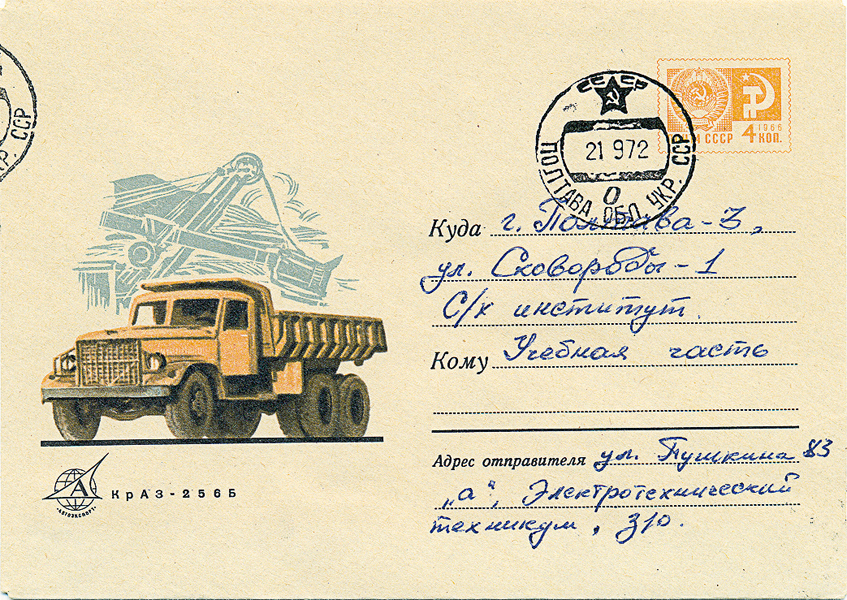 СССР
21 9 72
О
ПОЛТАВА ОБЛ. УКР. ССР
Р. ССР
СССР
1966
4 КОП.
Куда г. Полтава-3,
ул. Сковороды-1
С/х институт.
Кому Учебная часть
Адрес отправителя ул. Пушкина 83
„а“, Электротехнический
техникум, з/о.
А
АВТОЭКСПОРТ
КрАЗ-256Б